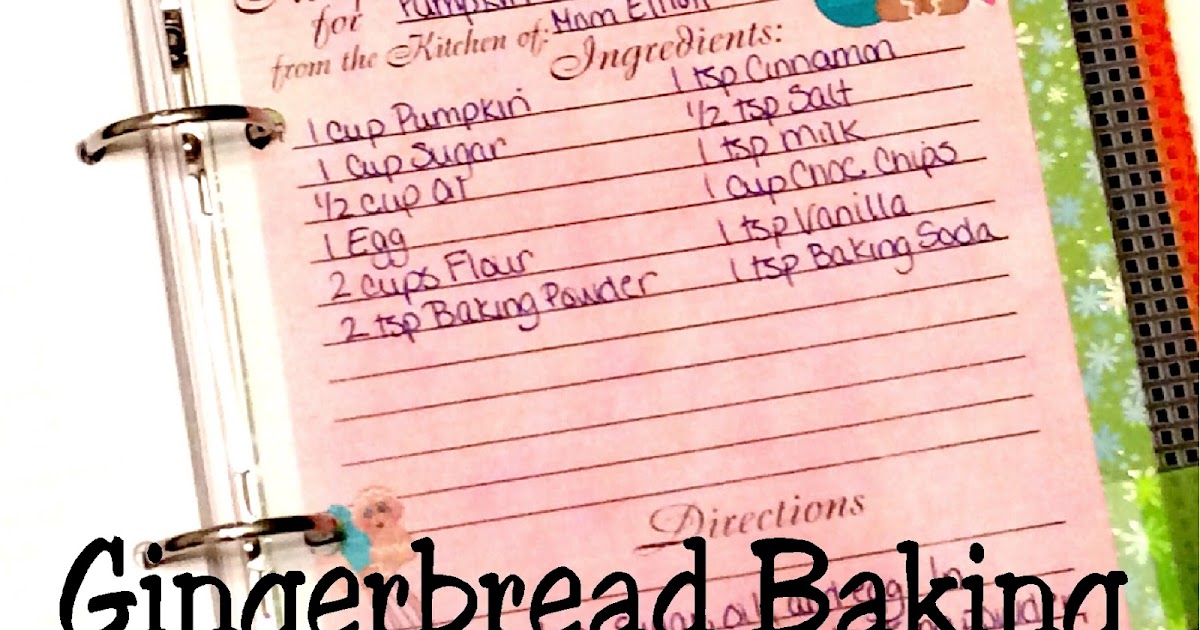 for Pumpkin
from the Kitchen of: Mom Elliott
Ingredients:
1 cup Pumpkin
1 cup Sugar
1/2 cup oil
1 Egg
2 cups Flour
2 tsp Baking Powder
1 tsp Cinnamon
1/2 tsp Salt
1 tsp milk
1 cup Choc. Chips
1 tsp Vanilla
1 tsp Baking Soda
Directions
oil and egg In
Gingerbread Baking